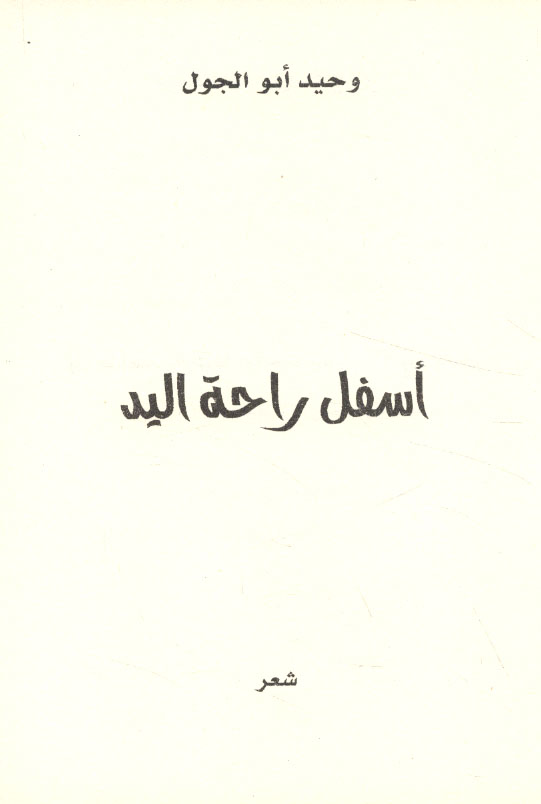 وحيد أبو الجول
أسفل راحة اليد
شعر